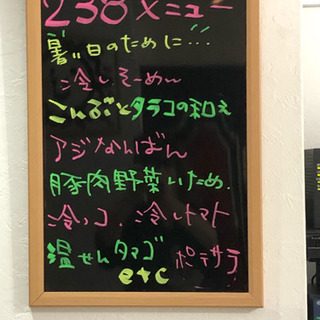 238メニュー
暑い日のために…
冷しそーめん
こんぶとタラコの和え
アジなんばん
豚肉野菜いため.
冷ッコ. 冷しトマト
温せんタマゴ ポテサラ
etc